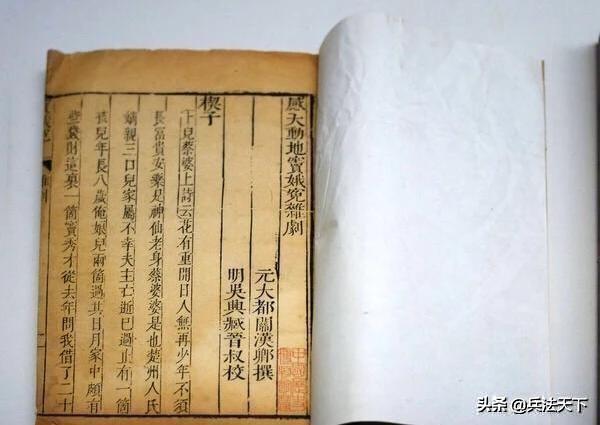 感天動地竇娥冤雜劇
元大都關漢卿撰
明吳興臧晉叔校
楔子
卜兒蔡婆上詩云花有重開日人無再少年不須
長富貴安樂是神仙老身蔡婆婆是也楚州人氏
嫡親三口兒家屬不幸夫主亡逝已過止有一箇
孩兒年長八歲俺娘兒兩箇過其日月家中頗有
些錢財這裏一箇竇秀才從去年問我借了二十
头条 @兵法天下